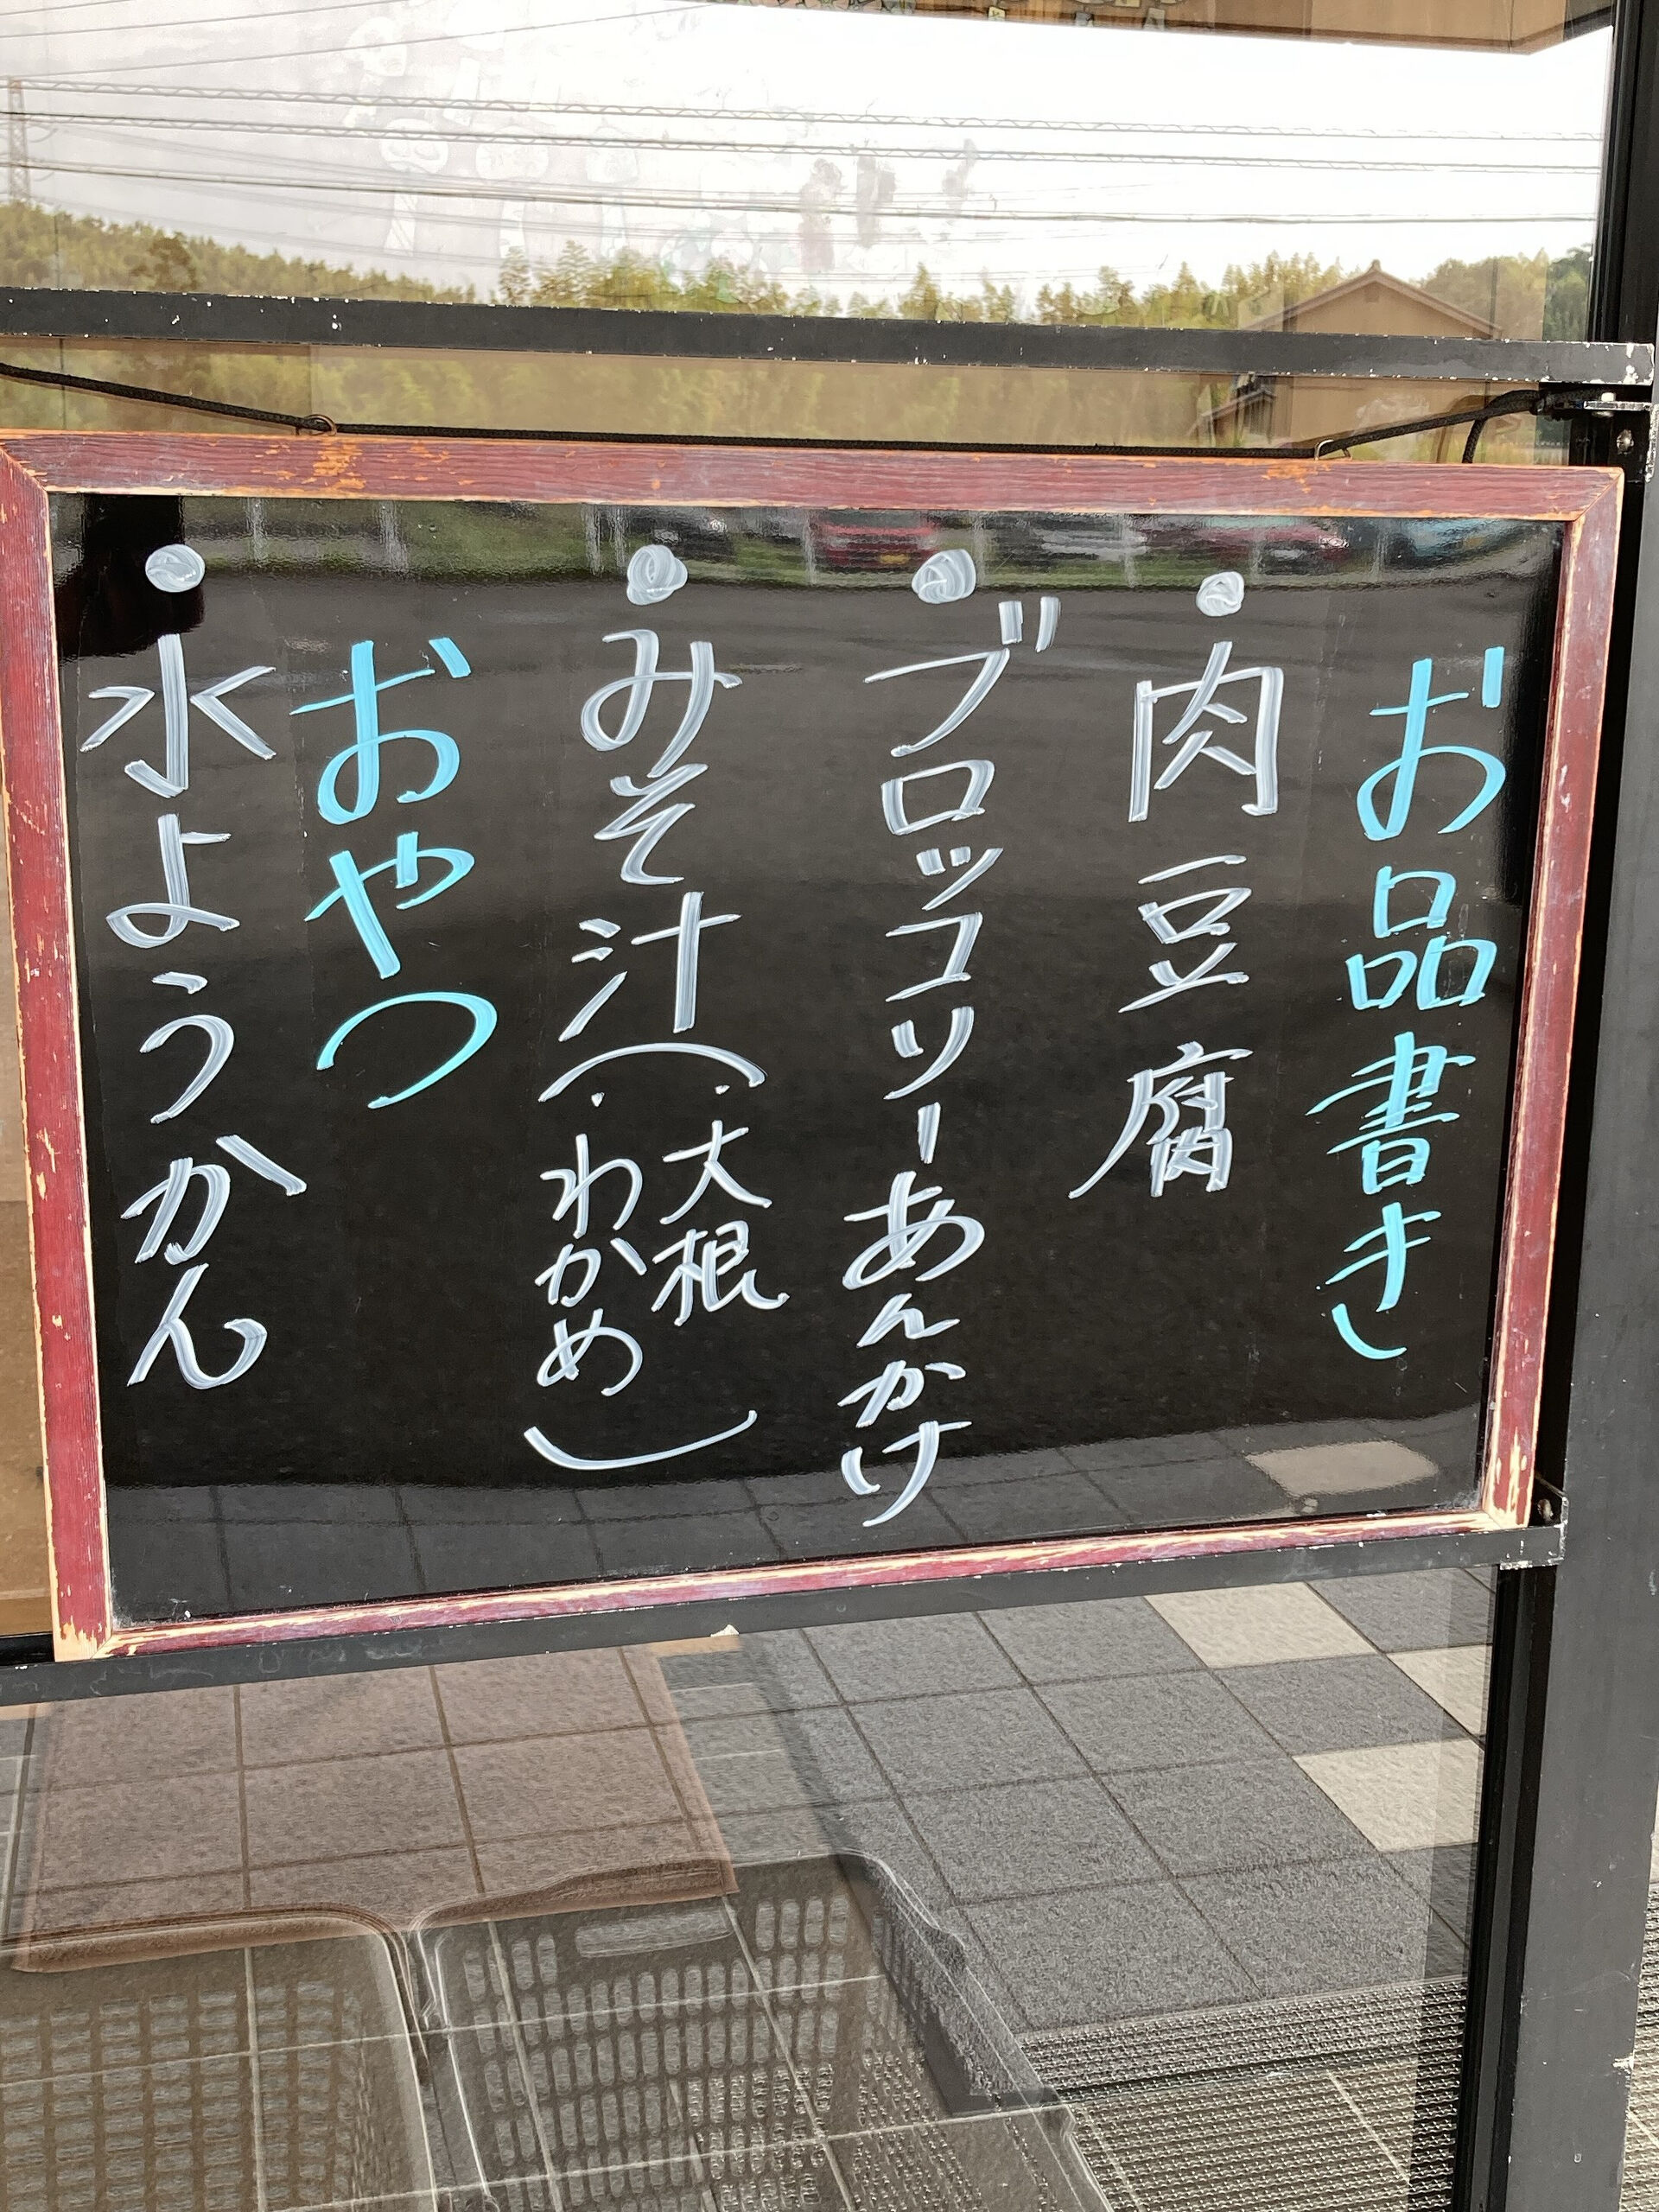 お品書き
●肉豆腐
●ブロッコリーあんかけ
●みそ汁(・大根
・わかめ)
おやつ
●水ようかん